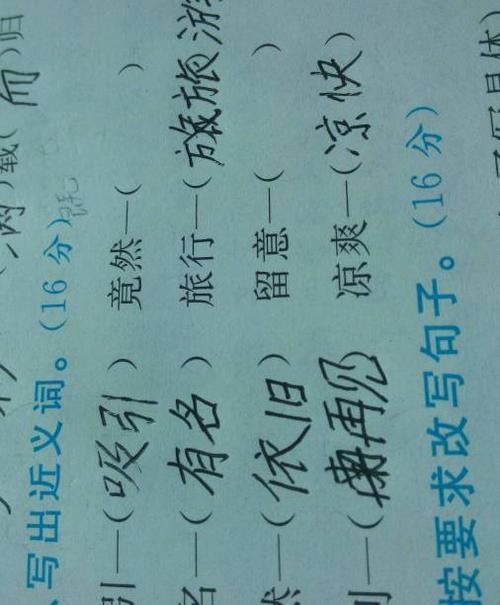 满)载(而)归
写出近义词。(16分)
引—(吸引) 竟然—( )
名—(有名) 旅行—(旅游
然—(依旧) 留意—( )
—(再见) 凉爽—(凉快)
按要求改写句子。(16分)